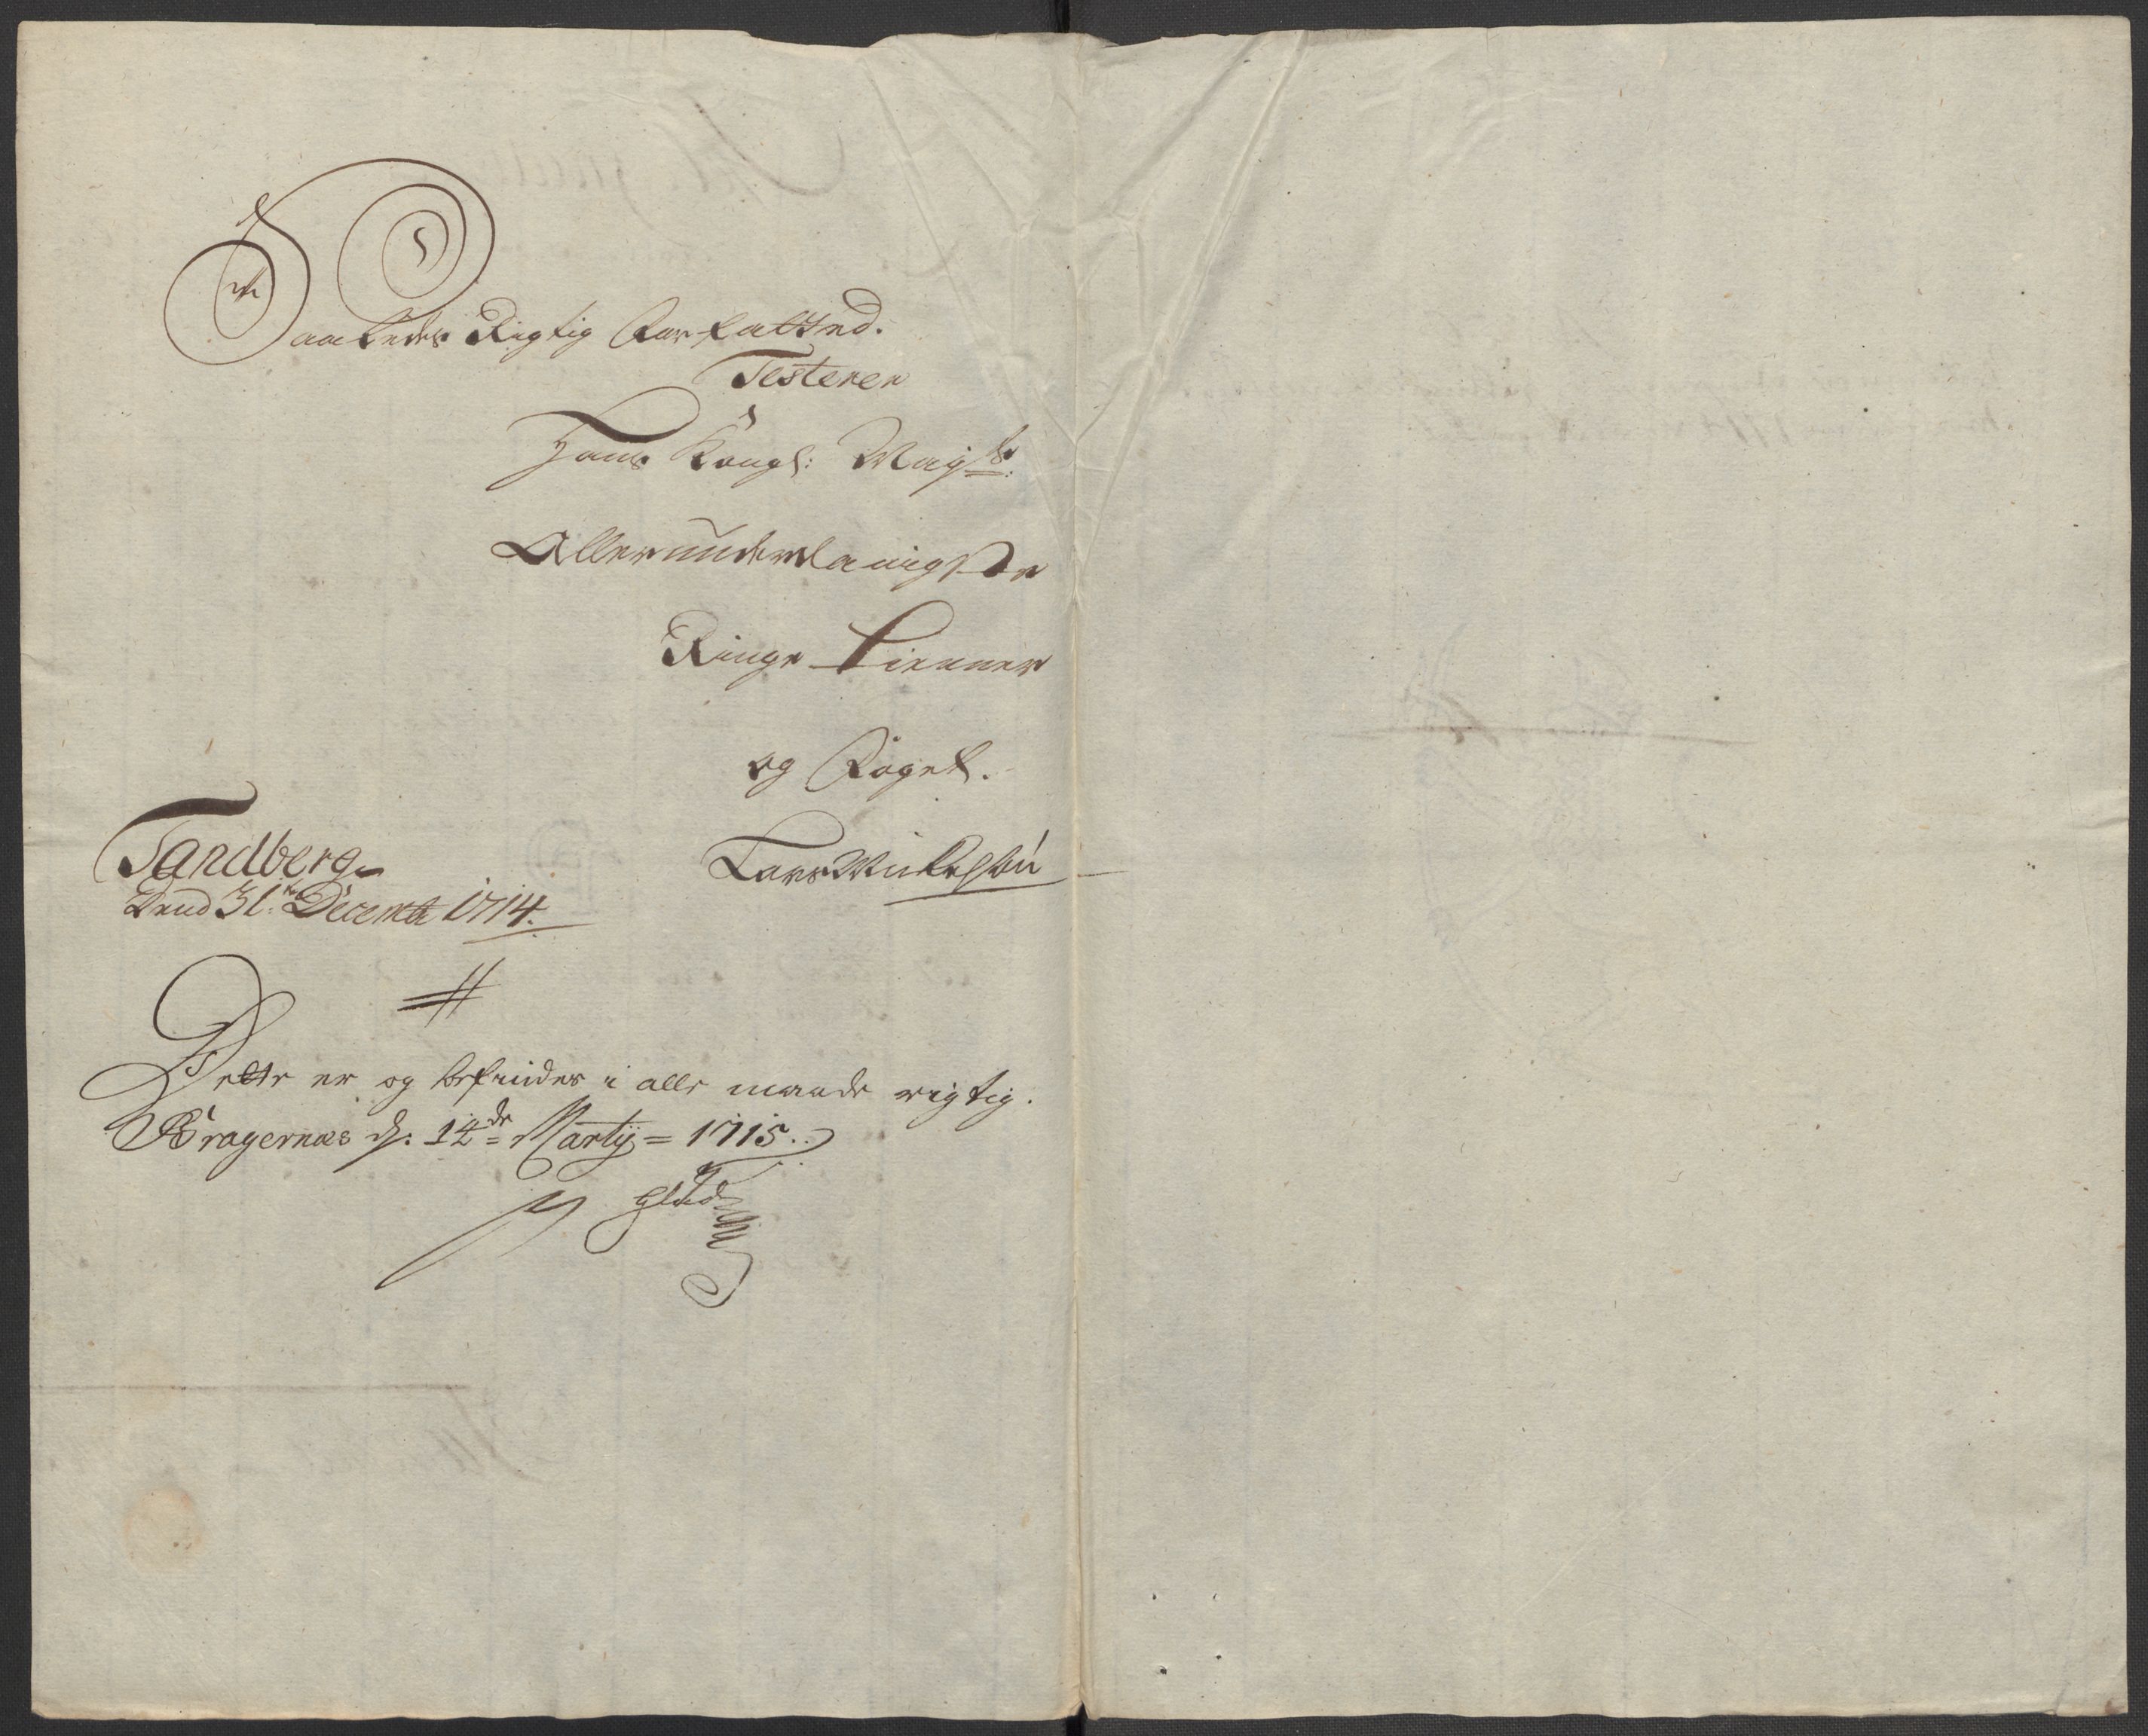 Saaledes Rigtig Forfatted.
Testerer
Hans Kongl: Mayts:
Allerunderdanigste
Ringe Tienner
og Foget.
Lars Mickelsøn
Tandberg
Dend 31te Decembr 1714.
Dette er og befindes i alle maade rigtig.
Bragernæs d: 12de Martij = 1715.
Glud